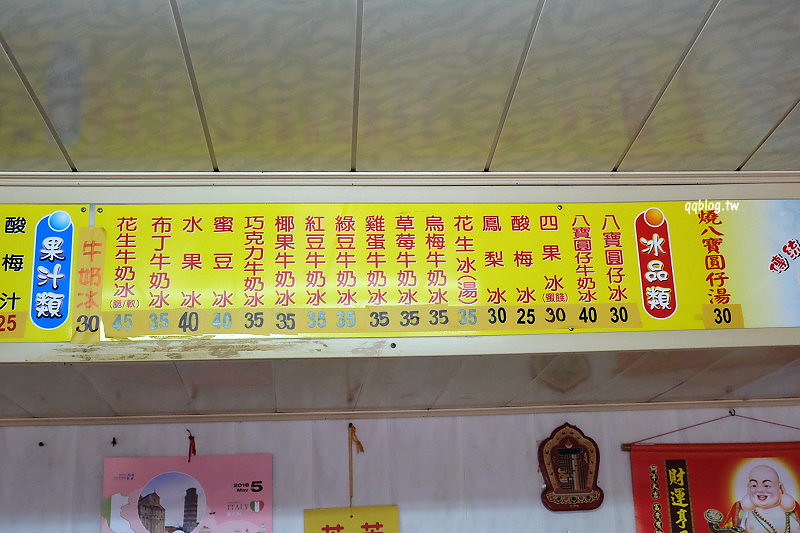 qqblog.tw
燒八寶圓仔湯 30
冰品類
八寶圓仔冰 30
八寶圓仔牛奶冰 40
四果冰(蜜餞) 30
酸梅冰 25
鳳梨冰 30
花生冰(湯) 35
烏梅牛奶冰 35
草莓牛奶冰 35
雞蛋牛奶冰 35
綠豆牛奶冰 35
紅豆牛奶冰 35
椰果牛奶冰 35
巧克力牛奶冰 35
蜜豆冰 40
水果冰 40
布丁牛奶冰 35
花生牛奶冰(脆/軟) 45
牛奶冰 30
果汁類
酸梅汁 25
2018 May 5
ITALY
財運亨